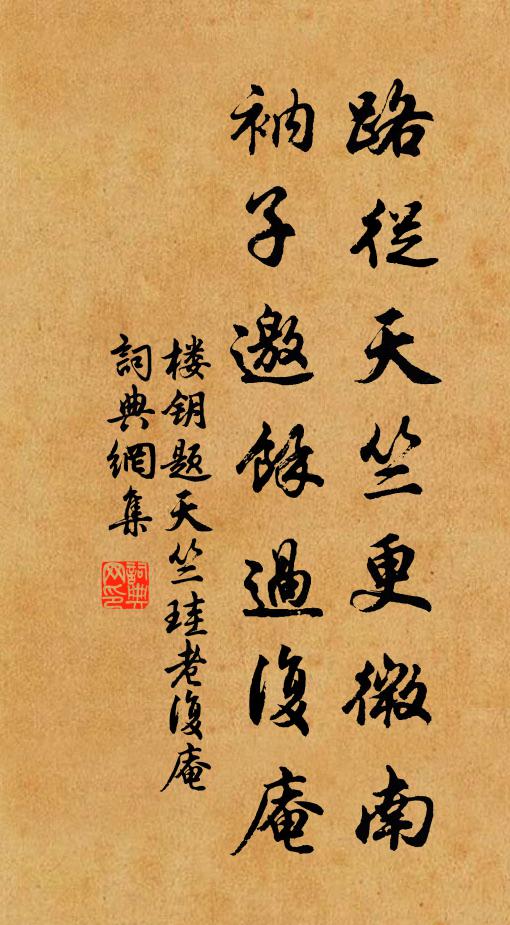 路從天竺更微南
衲子邀餘過復庵
楼钥题天竺珪老復庵
詞典網集
詞典网印